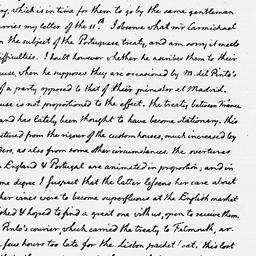 ng, which is in time for them to go by the same gentleman
carries my letter of the 11th. I observe what mr Carmichael
n the subject of the Portuguese treaty, and am sorry it meets
difficulties. I doubt however whether he ascribes them to their
cause, when he supposes they are occasioned by M. del Pinto's
of a party opposed to that of their minister at Madrid.
use is not proportioned to the effect. the treaty between France
and has lately been thought to have become stationary. this
from the rigour of the customhouses, much increased by
ers, as also from some other circumstances. the overtures
England & Portugal are animated in proportion, and in
me degree I suspect that the latter lessens her care about
her wines were to become superfluous at the English market
& hoped to find a great one with us, open to receive them.
Pinto's courier, which carried the treaty to Falmouth, ar-
few hours too late for the Lisbon packet boat. this lost